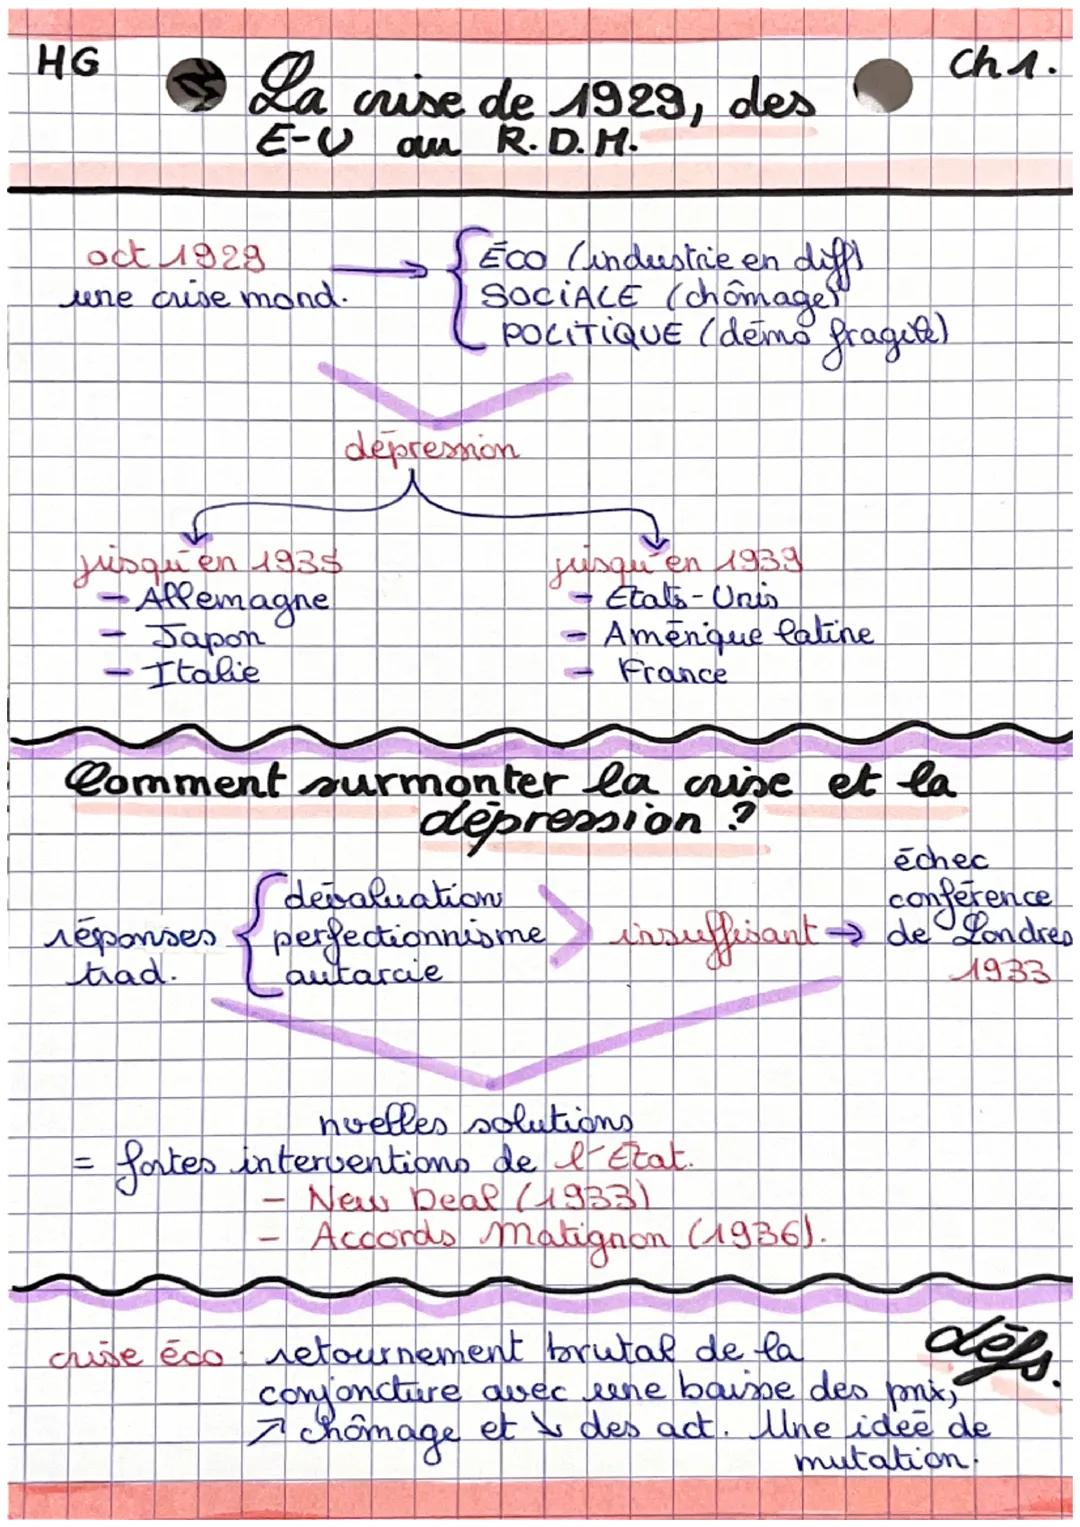 HG
Ch 1.
La crise de 1929, des
E-U au R.D.M.
oct 1929
une crise mond.
ÉCO (industrie en diff)
SOCIALE (chômage)
POLITIQUE (démo fragile)
dépression
jusqu'en 1935
- Allemagne
- Japon
- Italie
jusqu'en 1939
- États-Unis
- Amérique latine
- France
Comment surmonter la crise et la
dépression ?
réponses
trad.
dévaluation
perfectionnisme
autarcie
insuffisant →
échec
conférence
de Londres
1933
nvelles solutions
= fortes interventions de l'État.
- New Deal (1933)
- Accords Matignon (1936).
défs.
crise éco : retournement brutal de la
conjoncture avec une baisse des prix,
↗ chômage et ↘ des act. Une idée de
mutation.